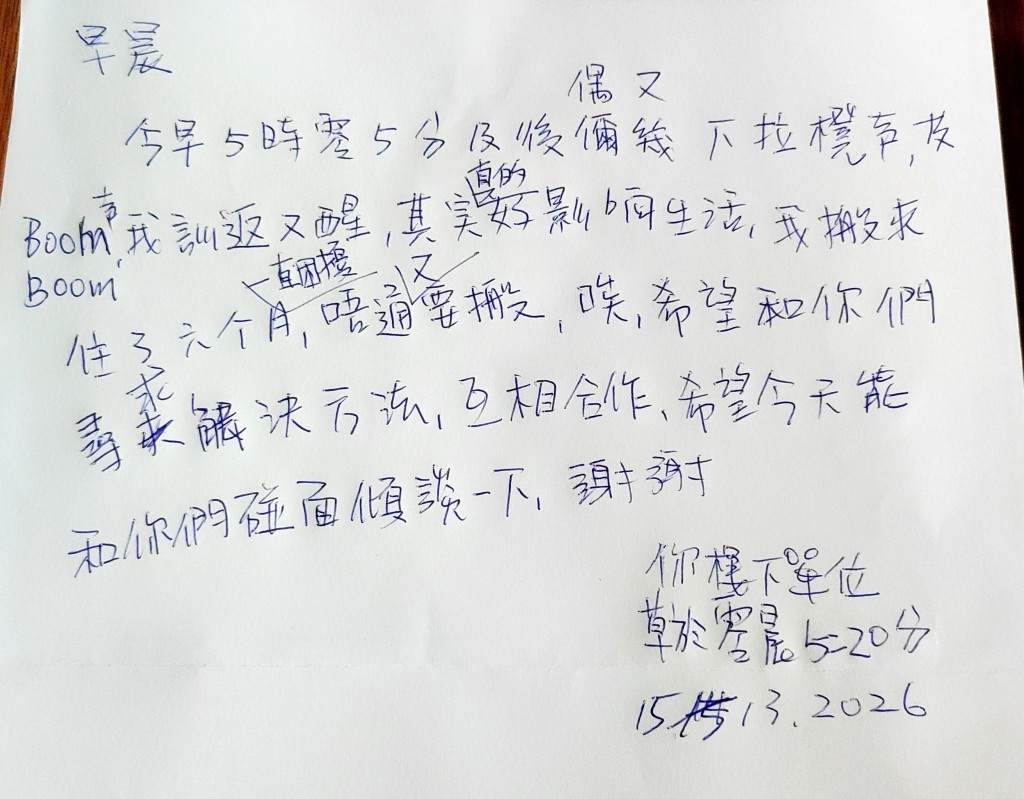 早晨
偶又
今早5時零5分及後彌幾下拉櫈声,及
Boom声,我訓返又醒,其实真的好影响生活,我搬來
Boom
住了六个月,一直困擾,唔通又要搬,唉,希望和你們
尋求解決方法,互相合作,希望今天能
和你們碰面傾談一下,謝謝
你樓下單位
草於零晨5=20分
15/3.2026